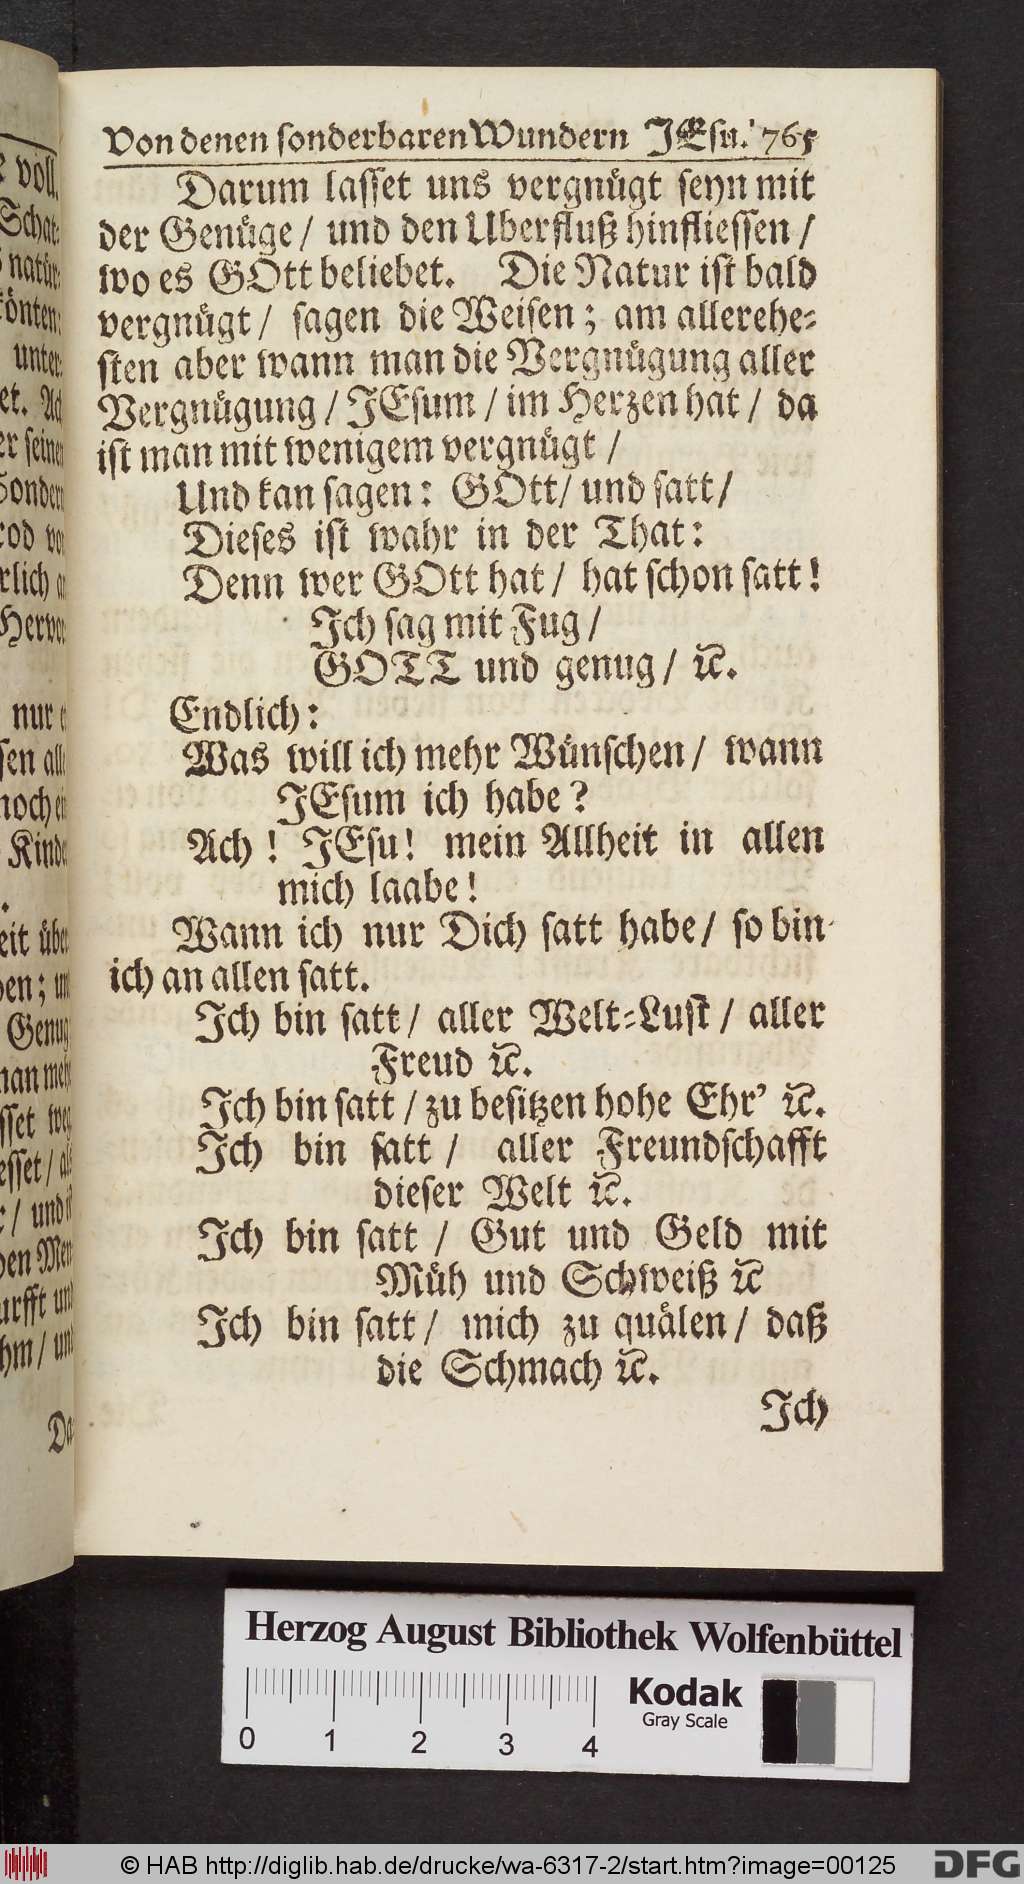 Von denen sonderbaren Wundern JEsu. 765
Darum lasset uns vergnügt seyn mit
der Genüge / und den Uberfluß hinfliessen /
wo es GOtt beliebet. Die Natur ist bald
vergnügt / sagen die Weisen; am allerehe-
sten aber wann man die Vergnügung aller
Vergnügung / JEsum / im Herzen hat / da
ist man mit wenigem vergnügt /
Und kan sagen: GOtt / und satt /
Dieses ist wahr in der That:
Denn wer GOtt hat / hat schon satt!
Ich sag mit Fug /
GOTT und genug / ꝛc.
Endlich:
Was will ich mehr Wünschen / wann
JEsum ich habe?
Ach! JEsu! mein Allheit in allen
mich laabe!
Wann ich nur Dich satt habe / so bin
ich an allen satt.
Ich bin satt / aller Welt-Lust / aller
Freud ꝛc.
Ich bin satt / zu besitzen hohe Ehr' ꝛc.
Ich bin satt / aller Freundschafft
dieser Welt ꝛc.
Ich bin satt / Gut und Geld mit
Müh und Schweiß ꝛc
Ich bin satt / mich zu quälen / daß
die Schmach ꝛc.
Ich
voll.
Schat-
natür-
könten:
unter-
et. Ach
er seinen
Sondern
rod
rlich
nur
sen
noch
Kinder
eit über
ben; und
Genug
man mehr
sset weg
esset / als
/ und
Men-
urfft und
hm / und
Da
Herzog August Bibliothek Wolfenbüttel
Kodak
Gray Scale
0 1 2 3 4
© HAB http://diglib.hab.de/drucke/wa-6317-2/start.htm?image=00125
DFG